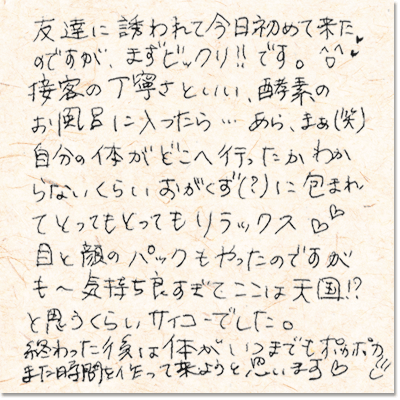 友達に誘われて今日初めて来た♥
のですが、まずビックリ!!です。^o^
接客の丁寧さといい、酵素の
お風呂に入ったら…あら、まぁ(笑)
自分の体がどこへ行ったかわか
らないくらいおがくず(?)に包まれ
てとってもとってもリラックス♡♡
目と顔のパックもやったのですが
も〜気持ち良すぎてここは天国!?
と思うくらいサイコーでした。
終わった後は体がいつまでもポカポカ
また時間を作って来ようと思います♡